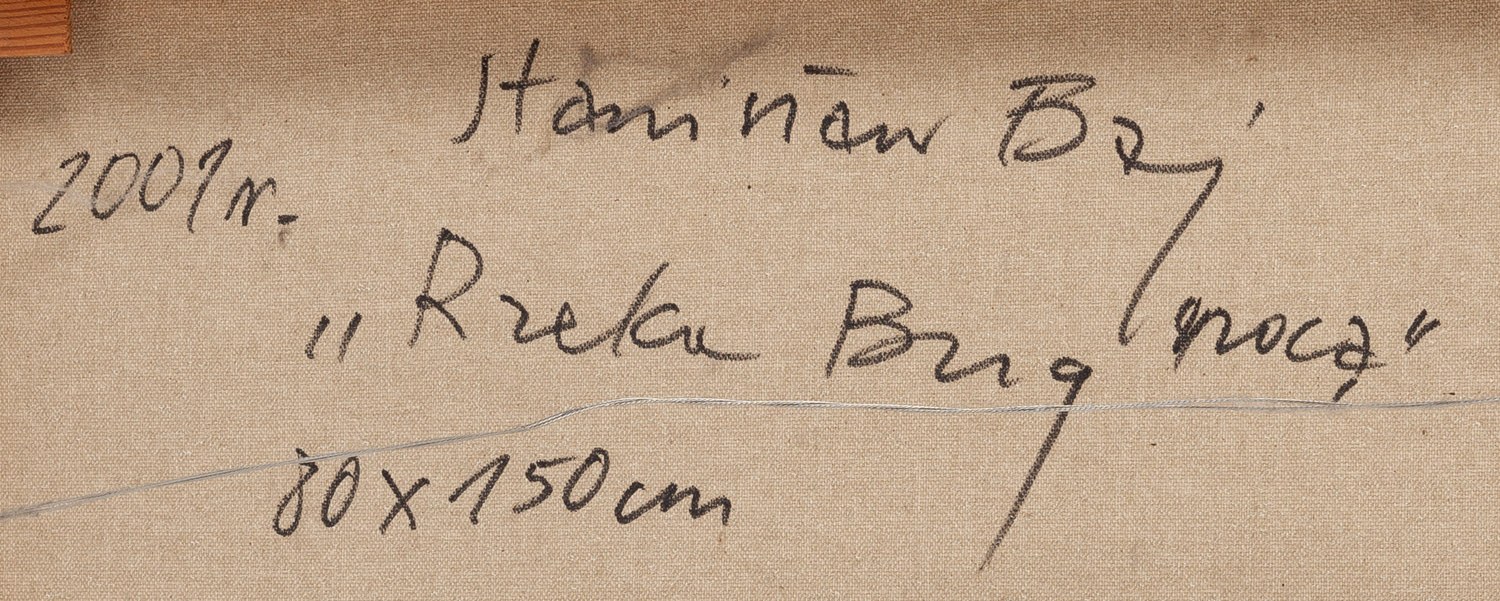 Stanisław Baj
2009 r.
„Rzeka Bug nocą"
80 x 150 cm